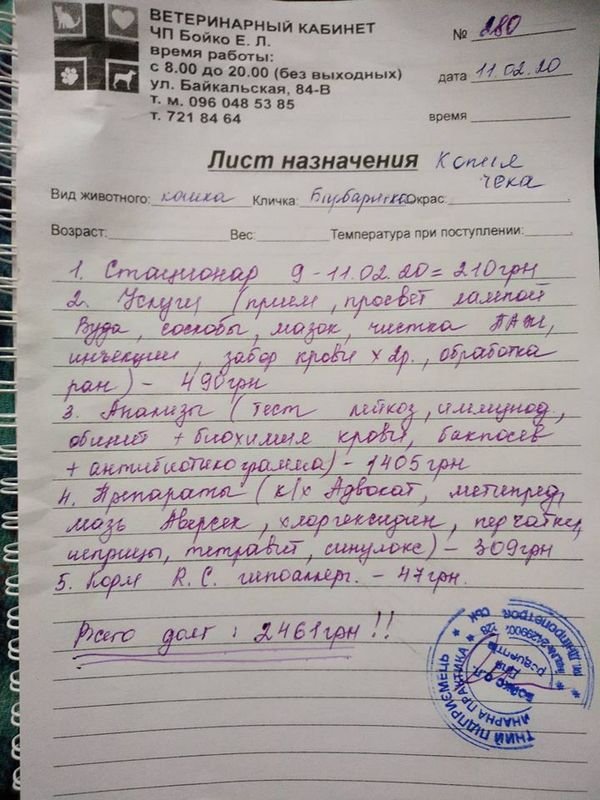 ВЕТЕРИНАРНЫЙ КАБИНЕТ
ЧП Бойко Е. Л.
время работы:
с 8.00 до 20.00 (без выходных)
ул. Байкальская, 84-В
т. м. 096 048 53 85
т. 721 84 64
№ 280
дата 11.02.20
время
Лист назначения Копия
чека
Вид животного: кошка Кличка: Окрас:
Возраст: Вес: Температура при поступлении:
1. Стационар 9-11.02.20 = 210грн
2. Услуги (прием, просвет лампой
Вуда, соскобы, мазок, чистка ПАЖ,
инъекции, забор крови х 2р., обработка
ран) - 490грн
3. Анализы (тест лейкоз, иммунод,
+ биохимия крови, бакпосев
+ антибиотикограмма) - 1405грн
4. Препараты (к/х Адвокат, метипред,
мазь Аверсек, хлоргексидин, перчатки,
шприцы, тетравит, синулокс) - 309грн
5. Корм R.C. гипоаллерг. - 47грн.
Всего долг: 2461грн!!
ТНИЙ ПІДПРИЄМЕЦЬ
ИНАРНА ПРАКТИКА
м. Дніпропетровськ